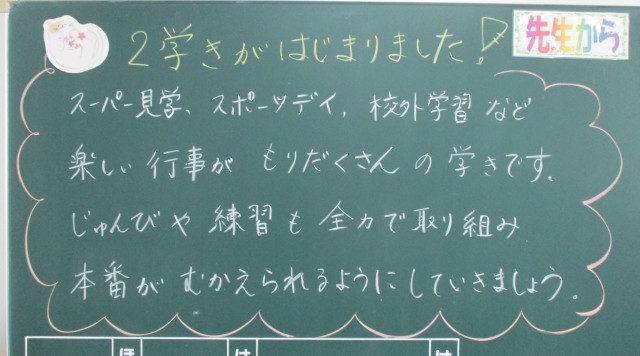 先生から
2学きがはじまりました!
スーパー見学、スポーツデイ、校外学習など
楽しい行事がもりだくさんの学きです。
じゅんびや練習も全力で取り組み
本番がむかえられるようにしていきましょう。